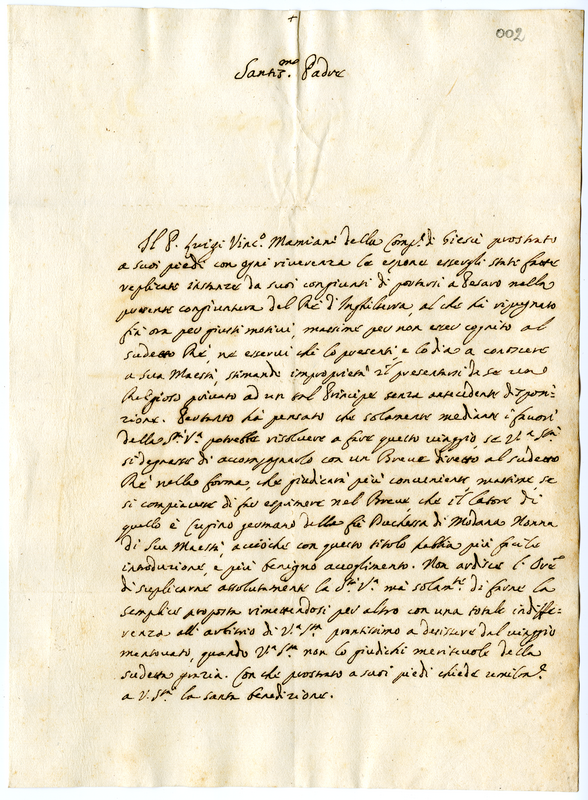 +
002
Santis.mo Padre
Il P. Luigi Vinc.o Mamiani della Comp.a di Giesù prostrato
a suoi piedi con ogni riverenza le espone essergli state fatte
replicate instanze da suoi congiunti di portarsi a Pesaro nella
presente congiuntura del Rè d'Inghilterra, al che hà ripugnato
fin ora per giusti motivi, massime per non esser cognito al
sudetto Rè, ne esservi chi lo presenti, e lo dia a conoscere
a Sua Maestà, stimando improprietà il presentarsi da se un
Religioso privato ad un tal Principe senza antecedente disposi-
zione. Pertanto hà pensato che solamente mediante i favori
della S.tà V.a potrebbe risolvere a fare questo viaggio se V.a S.tà
si degnasse di accompagnarlo con un Breve diretto al sudetto
Rè nella forma, che giudicarà più conveniente massime se
si compiacesse di far esprimere nel Breve che il latore di
quello è Cugino germano della fù Duchessa di Modana Nonna
di Sua Maestà, acciòche con questo titolo habbia più facile
introduzione, e più benigno accoglimento. Non ardisce l'Or.e
di supplicarne assolutamente la S.tà V.a mà solam.te di farne la
semplice proposta rimettendosi per altro con una totale indiffe-
renza all'arbitrio di V.a S.tà prontissimo a desistere dal viaggio
mentovato, quando V.a S.tà non lo giudichi meritevole della
sudetta grazia. Con che prostrato a suoi piedi chiede umilm.e
a V. S.tà la santa benedizione.